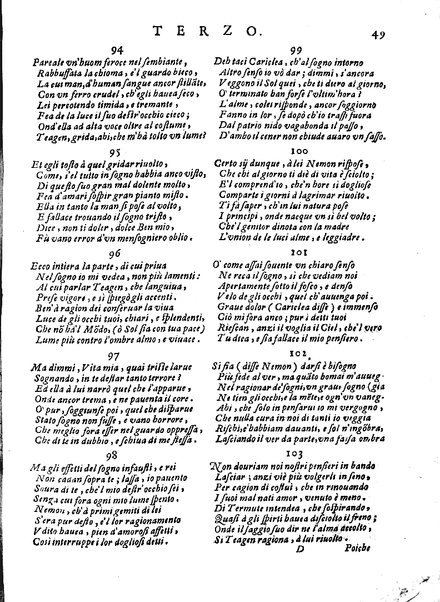 TERZO.
49
94
Pareale vn'huom feroce nel sembiante,
Rabbuffata la chioma, e'l guardo bieco,
La cui man, d'human sangue ancor stillãte,
Con vn ferro crudel, ch'egli hauea seco,
Lei percotendo timida, e tremante,
Fea de la luce il suo destr'occhio cieco;
Ond'ella ad alta voce oltre al costume,
Teagen, grida, ahi; che m'hà tolto vn lume?
95
Et egli tosto à quel gridar riuolto,
Come, s'el tutto in sogno habbia anco visto,
Di questo suo gran mal dolente molto,
Fea d'amari sospir gran pianto misto.
Ella in tanto la man si pose al volto,
E fallace trouando il sogno tristo,
Dice, non ti doler, dolce Ben mio,
Fù vano error d'vn mensogniero oblio.
96
Ecco intiera la parte, di cui priua
Nel sogno io mi vedea, non più lamenti:
Al cui parlar Teagen, che languiua,
Prese vigore, e sì spiegò gli accenti.
Ben'à ragion dei conseruar la viua
Luce de gli occhi tuoi, chiari, e splendenti,
Che nõ hà'l Mõdo, (ò Sol sia con tua pace)
Lume più contro l'ombre almo, e viuace.
97
Ma dimmi, Vita mia, quai triste larue
Sognando, in te destar tanto terrore?
Ed ella à lui narrò quel che l'apparue,
Onde ancor trema, e ne pauenta il core.
O' pur, soggiunse poi, quel che disparue
Stato sogno non fusse, e vano horrore,
Che meglio fora esser nel guardo oppressa,
Che di te in dubbio, e schiua di me stessa.
98
Ma gli effetti del sogno infausti, e rei
Non cadan sopra te; lassa, io pauento
Saura di te, chè'l mio destr'occhio sei,
Senza cui fora ogni mio lume spento.
Nemon, ch'à primi gemiti di lei
S'era pur desto, e'l lor ragionamento
Vdito hauea, pien d'amorosi affetti,
Così interruppe i lor dogliosi detti.
99
Deh taci Cariclea, ch'al sogno intorno
Altro senso io vò dar; dimmi, s'ancora
Veggono il Sol quei, che ti diero al giorno,
O' terminato han forse l'vltim'hora?
L'alme, coles risponde, ancor soggiorno
Fanno in lor, se dopò ch'io trassi fuora
Dal patrio nido vagabonda il passo,
D'ambo il cener non chiude auaro vn sasso.
100
Certo sì dunque, à lei Nemon rispose,
Che chi al giorno ti diè di vita è sciolto;
E'l comprend'io, che'n hore sì dogliose
Comparte i giorni à lagrimar riuolto.
Ti fà saper, ch'in lui natura pose
I principi, onde nacque vn sì bel volto;
Che'l genitor dinota con la madre
L'vnion de le luci alme, e leggiadre.
101
O' come assai souente vn chiaro senso
Ne reca il sogno, e sì che vediam noi
Apertamente sotto il fosco, e denso
Velo de gli occhi, quel ch'auuenga poi.
Graue dolor (Cariclea disse) e immenso
Ciò mi fora anco; pur i detti tuoi
Riescan, anzi il voglia il Ciel, che'l vero
Tu dica, e sia fallace il mio pensiero.
102
Sì sia (disse Nemon) darsi è bisogno
Più fede al ver, ma quãto homai m'auueg-
Nel ragionar de'sogni, vn graue sogno (gia
Ne tien gli occhi, e la mẽte, e ogn'vn vaneg-
Abi, che solo in pensarui io mi vergogno,
Che nulla cura in noi di tanti io veggia
Rischi, c'habbiam dauanti, e sol n'ingõbra,
Lasciando il ver da parte, vna falsa ombra
103
Non douriam noi nostri pensieri in bando
Lasciar; anzi viè più volgerli in seno,
Per cagion di costui, che in rinouando
I suoi mal nati amor, venuto è meno.
Di Termute intendea, che sospirando,
Quasi à gli spirti hauea disciolto il freno;
Onde il saggio suo dir ne l'alma accolto,
Sì Teagen ragiona, à lui riuolto.
D Poiche